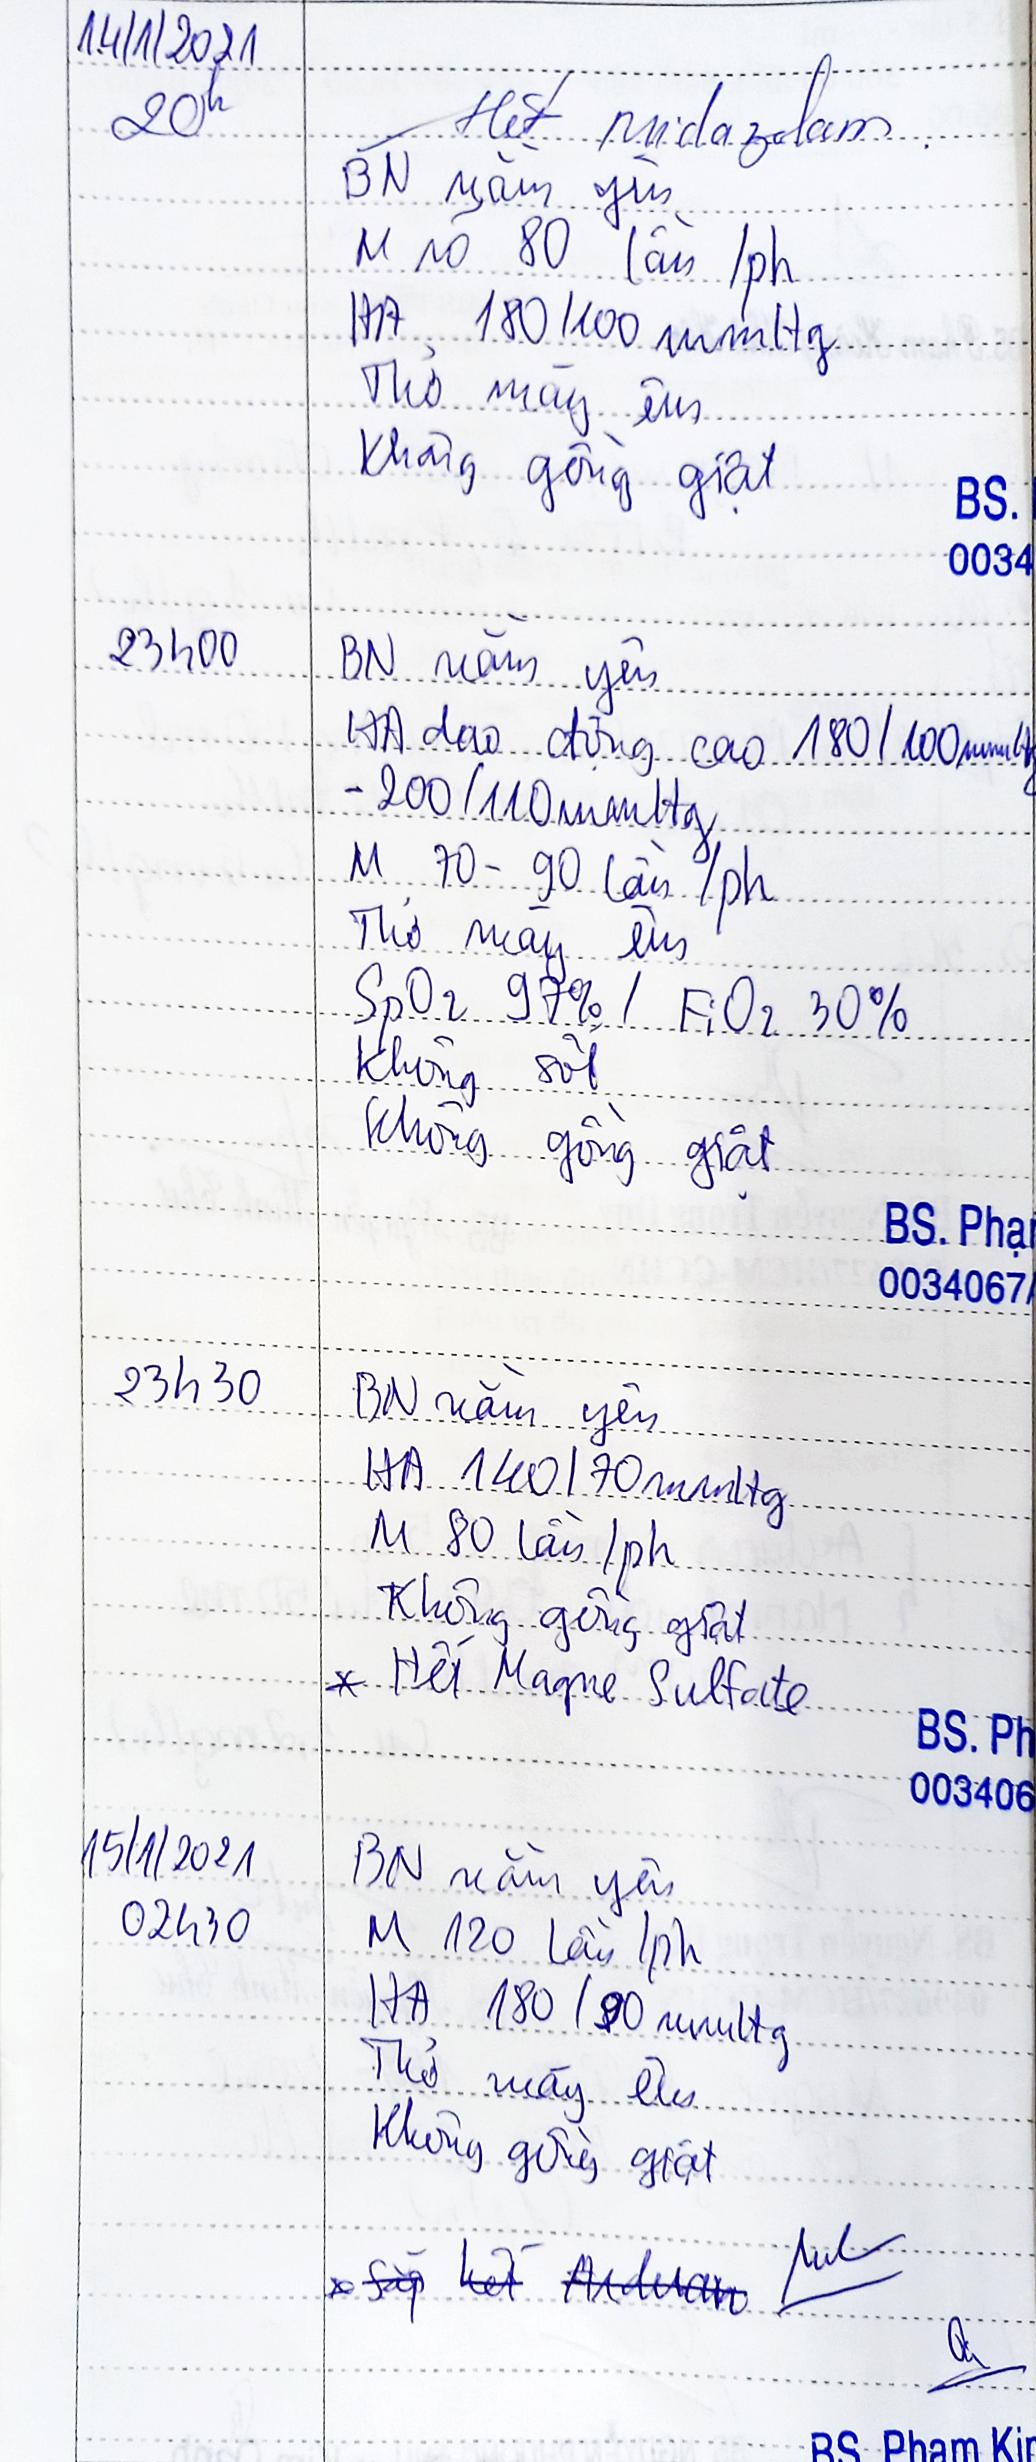 14/1/2021
20h
Hết midazolam
BN nằm yên
M rõ 80 lần /ph
HA 180/100 mmHg
Thở máy êm
Không gồng giật
BS.
0034
23h00
BN nằm yên
HA dao động cao 180/100mmHg
- 200/110mmHg
M 70 - 90 lần /ph
Thở máy êm
SpO2 97% / FiO2 30%
Không sốt
Không gồng giật
BS. Phạ
0034067/
23h30
BN nằm yên
HA 140/70mmHg
M 80 lần /ph
Không gồng giật
* Hết Magne Sulfate
BS. Ph
003406
15/1/2021
02h30
BN nằm yên
M 120 lần /ph
HA 180/90 mmHg
Thở máy êm
Không gồng giật
* sắp hết Arduan
BS. Phạm Kim